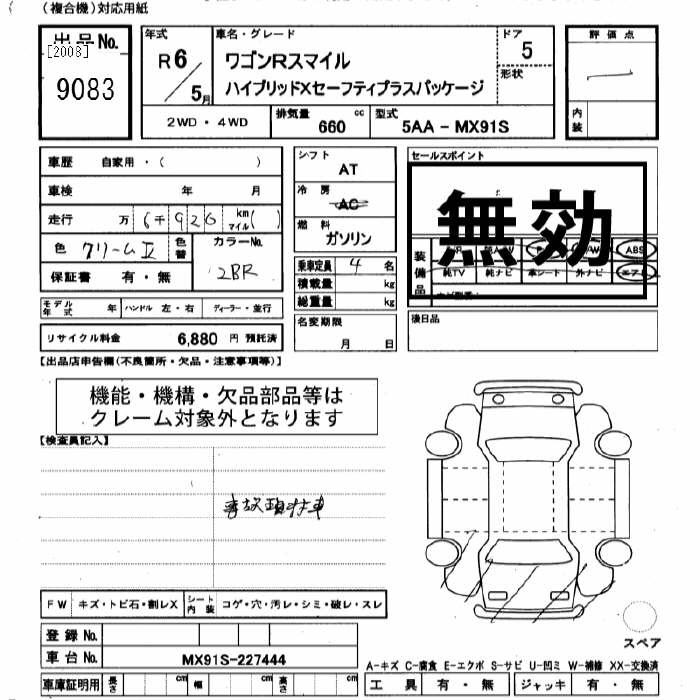 (複合機)対応用紙
出品No.
[2008]
9083
年式
R6/5月
車名・グレード
ワゴンRスマイル
ハイブリッドXセーフティプラスパッケージ
ドア
5
形状
評価点
内装
2WD・4WD
排気量 660 cc
型式 5AA - MX91S
車歴 自家用・( )
車検 年 月
走行 万 6千926 km マイル( )
色 クリームII
色替
カラーNo. 2BR
保証書 有・無
モデル年式 年 ハンドル 左・右 ディーラー・並行
リサイクル料金 6,880 円 預託済
シフト
AT
冷房
AC
燃料
ガソリン
乗車定員 4 名
積載量 kg
総重量 kg
名変期限
月 日
セールスポイント
無効
装備品
ABS
純TV 純ナビ 革シート 外ナビ エアB
後日品
【出品店申告欄(不良箇所・欠品・注意事項等)】
機能・機構・欠品部品等は
クレーム対象外となります
【検査員記入】
事故現状車
FW キズ・トビ石・割レX
シート内装 コゲ・穴・汚レ・シミ・破レ・スレ
登録No.
車台No. MX91S-227444
車庫証明用 長さ cm 幅 cm 高さ cm
スペア
A-キズ C-腐食 E-エクボ S-サビ U-凹ミ W-補修 XX-交換済
工具 有・無 ジャッキ 有・無